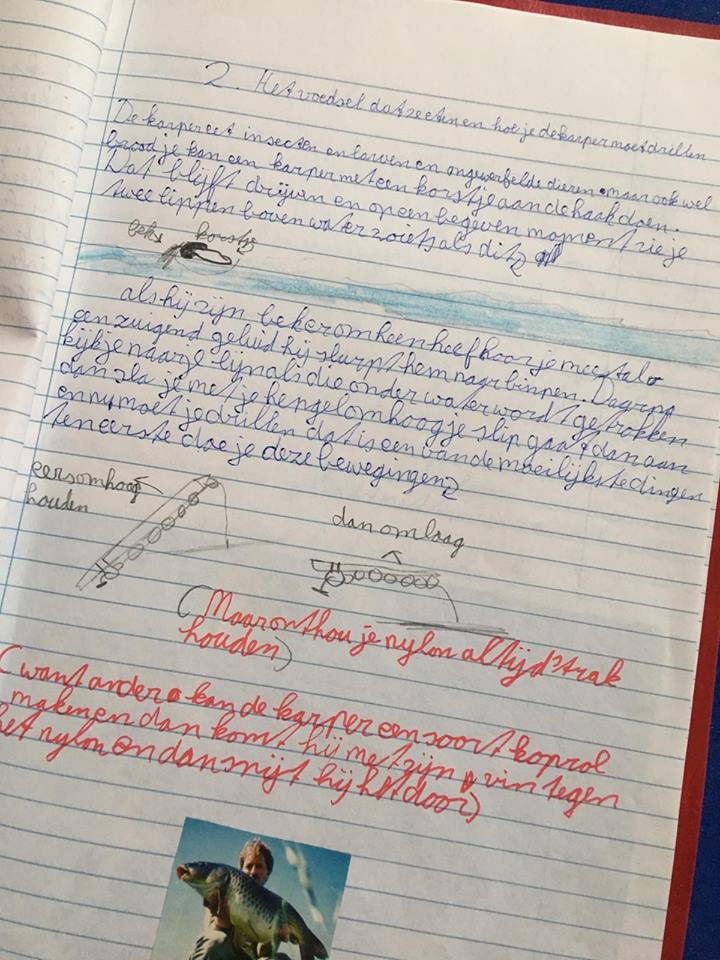 2. Het voedsel dat ze eten en hoe je de karper moet drillen
De karper eet insecten en larven en ongewerfelde dieren maar ook wel
brood je kan een karper met een korstje aan de haak doen.
Dat blijft drijven en op een begeven moment zie je
twee lippen boven water zoiets als dit
bek korstje
als hij zijn bek eromheen heef hoor je meestal
een zuigend geluid hij slurpt hem naar binnen. Daarna
kijk je naar je lijn als die onder water word getrokken
dan sla je met je hengel omhoog je slip gaat dan aan
en nu moet je drillen dat is een van de moeilijkste dingen
ten eerste doe je deze bewegingen
eers omhoog
houden
dan omlaag
(Maar onthou je nylon altijd strak
houden)
(want anders kan de karper een soort koprol
maken en dan komt hij met zijn vin tegen
het nylon en dan snijt hij het door)